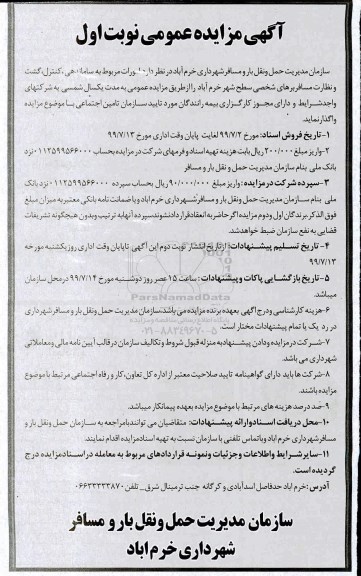 آگهی مزایده عمومی نوبت اول
سازمان مدیریت حمل ونقل بار و مسافر شهرداری خرم آباد در نظر دارد امورات مربوط به ساماندهی، کنترل، گشت
و نظارت مسافربرهای شخصی سطح شهر خرم آباد را از طریق مزایده عمومی به مدت یکسال شمسی به شرکتهای
واجد شرایط و دارای مجوز کارگزاری بیمه رانندگان مورد تایید سازمان تامین اجتماعی با موضوع مزایده
واگذار نماید.
۱- تاریخ فروش اسناد: مورخ ۹۹/۷/۲ لغایت پایان وقت اداری مورخ ۹۹/۷/۱۳
۲- واریز مبلغ ۲۰۰/۰۰۰ ریال بابت هزینه تهیه اسناد و فرمهای شرکت در مزایده بحساب ۰۱۱۲۵۹۹۵۶۶۰۰۰ نزد
بانک ملی بنام سازمان مدیریت حمل ونقل بار و مسافر
۳- سپرده شرکت در مزایده: واریز مبلغ ۹۰/۰۰۰/۰۰۰ ریال بحساب سپرده ۰۱۱۲۵۹۹۵۶۶۰۰۰ نزد بانک
ملی بنام سازمان مدیریت حمل ونقل بار و مسافر شهرداری خرم آباد و یا ضمانت نامه بانکی معتبر به میزان مبلغ
فوق الذکر. برندگان اول و دوم مزایده اگر حاضر به انعقاد قرارداد نشوند سپرده آنها به ترتیب و بدون هیچگونه تشریفات
قضایی به نفع سازمان ضبط خواهد شد.
۴- تاریخ تسلیم پیشنهادات: از تاریخ انتشار نوبت دوم این آگهی تا پایان وقت اداری روز یکشنبه مورخه
۹۹/۷/۱۳
۵- تاریخ بازگشایی پاکات و پیشنهادات: ساعت ۱۵ عصر روز دوشنبه مورخ ۹۹/۷/۱۴ در محل سازمان
میباشد.
۶- هزینه کارشناسی و درج آگهی بعهده برنده مزایده می باشد. سازمان مدیریت حمل ونقل بار و مسافر شهرداری
در رد یک یا تمام پیشنهادات مختار است.
۷- شرکت در مزایده و دادن پیشنهاد به منزله قبول شروط و تکالیف سازمان در قالب آیین نامه مالی و معاملاتی
شهرداری می باشد.
۸- شرکت ها باید دارای گواهینامه تایید صلاحیت معتبر از اداره کل تعاون، کار و رفاه اجتماعی مرتبط با موضوع
مزایده باشند.
۹- صد درصد هزینه های مرتبط با موضوع مزایده بعهده پیمانکار میباشد.
۱۰- محل دریافت اسناد و ارائه پیشنهادات: متقاضیان می توانند با مراجعه به سازمان حمل ونقل بار و
مسافر شهرداری خرم آباد و یا تماس تلفنی با سازمان نسبت به تهیه اسناد مزایده اقدام نمایند.
۱۱- سایر شرایط و اطلاعات و جزئیات و نمونه قراردادهای مربوط به معامله در اسناد مزایده درج
گردیده است.
آدرس: خرم آباد حدفاصل اسدآبادی و کرگانه جنب ترمینال شرق_ تلفن ۰۶۶۳۳۳۳۳۸۷۰
سازمان مدیریت حمل و نقل بار و مسافر
شهرداری خرم آباد
ParsNamadData
۰۲۱-۸۸۳۴۹۶۷۰-۵